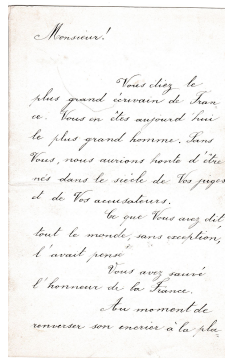 Monsieur!
Vous étiez le
plus grand écrivain de Fran
ce. Vous en êtes aujourd'hui
le plus grand homme. Sans
Vous, nous aurions honte d'être
nés dans le siècle de Vos juges
et de Vos accusateurs.
Ce que Vous avez dit
tout le monde, sans exception,
l'avait pensé
Vous avez sauvé
l'honneur de la France.
Au moment de
renverser son encrier à la pla-